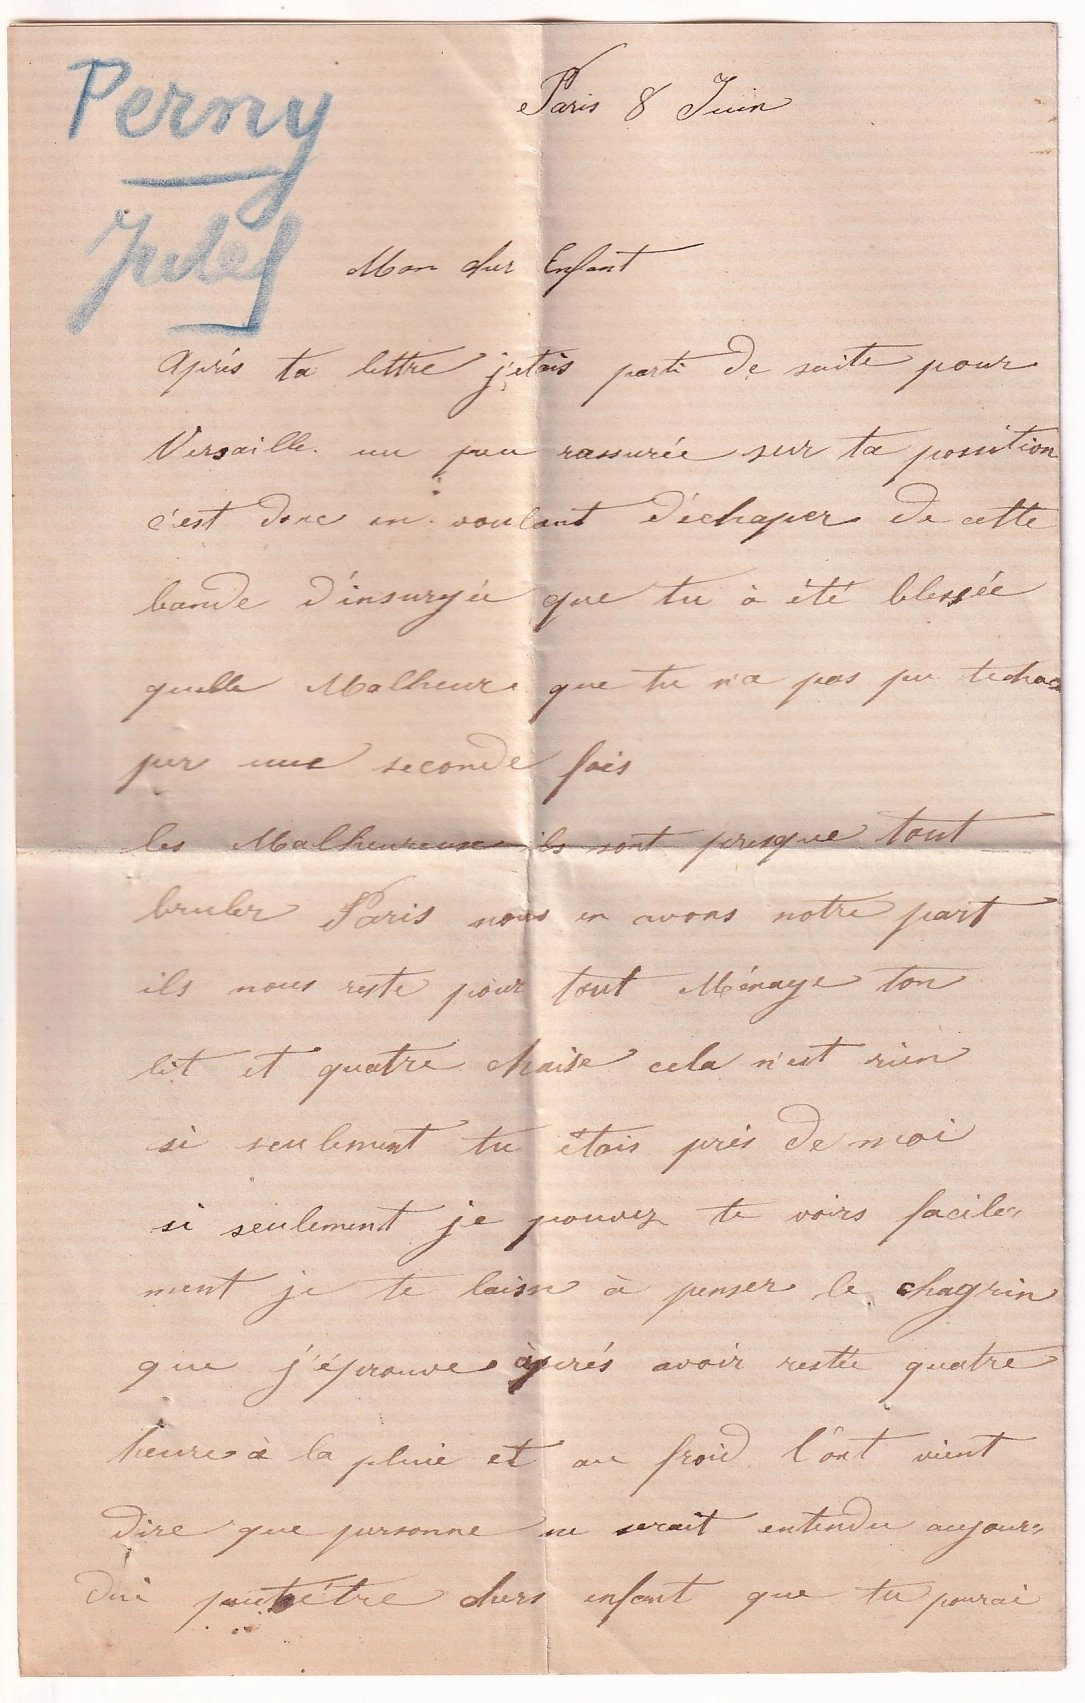 Perny
Jules
Paris 8 Juin
Mon cher Enfant
Après ta lettre j'etais parti de suite pour
Versaille un peu rassurée sur ta possition
c'est donc en voulant d'échaper de cette
bande d'insurgée que tu à été blessée
quelle Malheur que tu n'a pas pu techa
per une seconde fois
les Malheureuse ils sont presque tout
bruler Paris nous en avons notre part
ils nous reste pour tout Ménage ton
lit et quatre chaise cela n'est rien
si seulement tu étais près de moi
si seulement je pouvez te voirs facile=
ment je te laisse à penser le chagrin
que j'éprouve après avoir restée quatre
heure à la pluie et au froid l'ont vient
dire que personne ne serait entendu aujour=
dui peutétre chers enfant que tu pourai